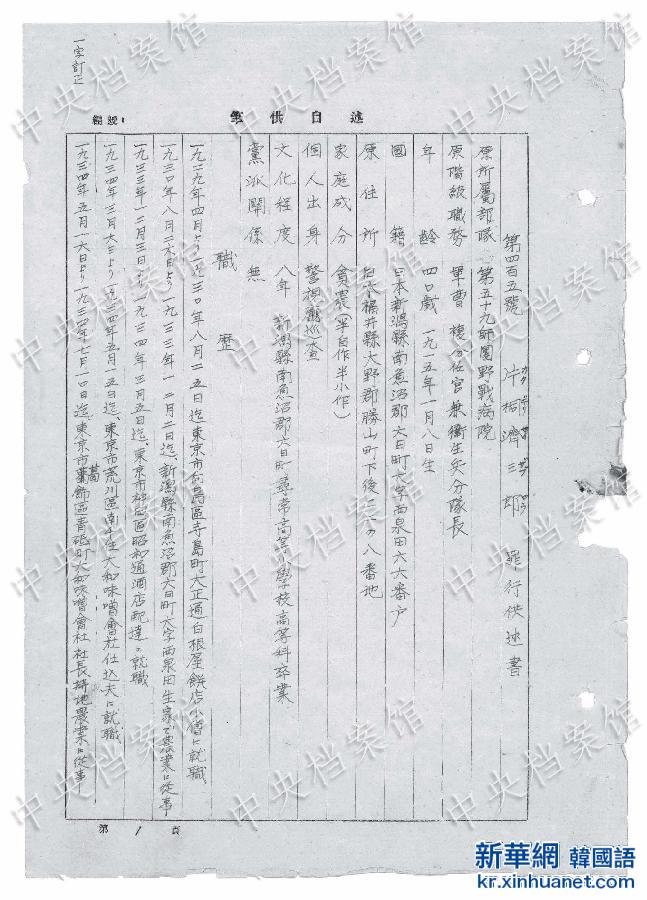 一字訂正
述自供筆
編號:
第四百五號 片桐濟三郎 罪行供述書
カタギリサイザブロウ
原所屬部隊 第五十九師團野戰病院
原階級職務 軍曹 複分任官兼衞生兵分隊長
年齡 四〇歲 一九一五年一月八日生
國籍 日本新潟縣南魚沼郡六日町大字西泉田六六番戶
原住所 日本福井縣大野郡勝山町下後二〇八番地
家庭成分 貧農(半自作半小作)
個人出身 警視廳巡查
文化程度 八年 新潟縣南魚沼郡六日町尋常高等小學校高等科卒業
黨派關係 無
職歷
一九二九年四月より一九三〇年八月二五日迄東京市向島區寺島町大正通白根屋餅店小僧に就職
一九三〇年八月二六日より一九三三年一二月二日迄、新潟縣南魚沼郡六日町大字西泉田生家で農業に從事
一九三三年一二月三日より一九三四年三月五日迄、東京市神田區昭和通酒店配達に就職
一九三四年三月六日より一九三四年五月一五日迄、東京市荒川區南千住大和味噌會社仕込夫に就職
葛
一九三四年五月一六日より一九三四年七月一〇日迄、東京市葛飾區青砥町大和味噌會社社長耕地農業に從事
第 1 頁
中央档案馆
中央档案馆
中央档案馆
中央档案馆
中央档案馆
中央档案馆
中央档案馆
中央档案馆
新華網 韓國語
kr.xinhuanet.com